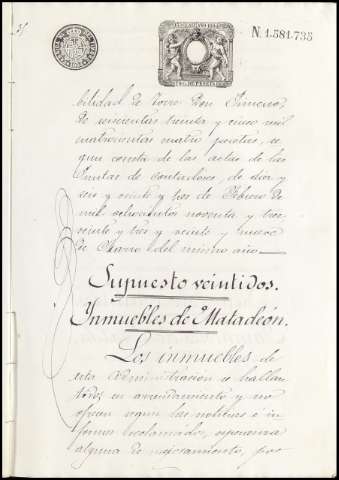 N. 1.581.735
bilidad de
de seiscientas treinta y cinco mil
cuatrocientas cuatro pesetas, se
gun consta de las actas de las
Juntas de contadores, de diez y
seis y veinte y tres de Febrero de
mil ochocientos noventa y tres
veinte y tres y veinte y nueve
de Marzo del mismo año
Supuesto veintidos.
Inmuebles de Matadeón.
Los inmuebles de
esta Administración se hallan
todos en arrendamiento y no
ofrecen segun las noticias é in
formes reclamados, esperanza
alguna de mejoramiento, por